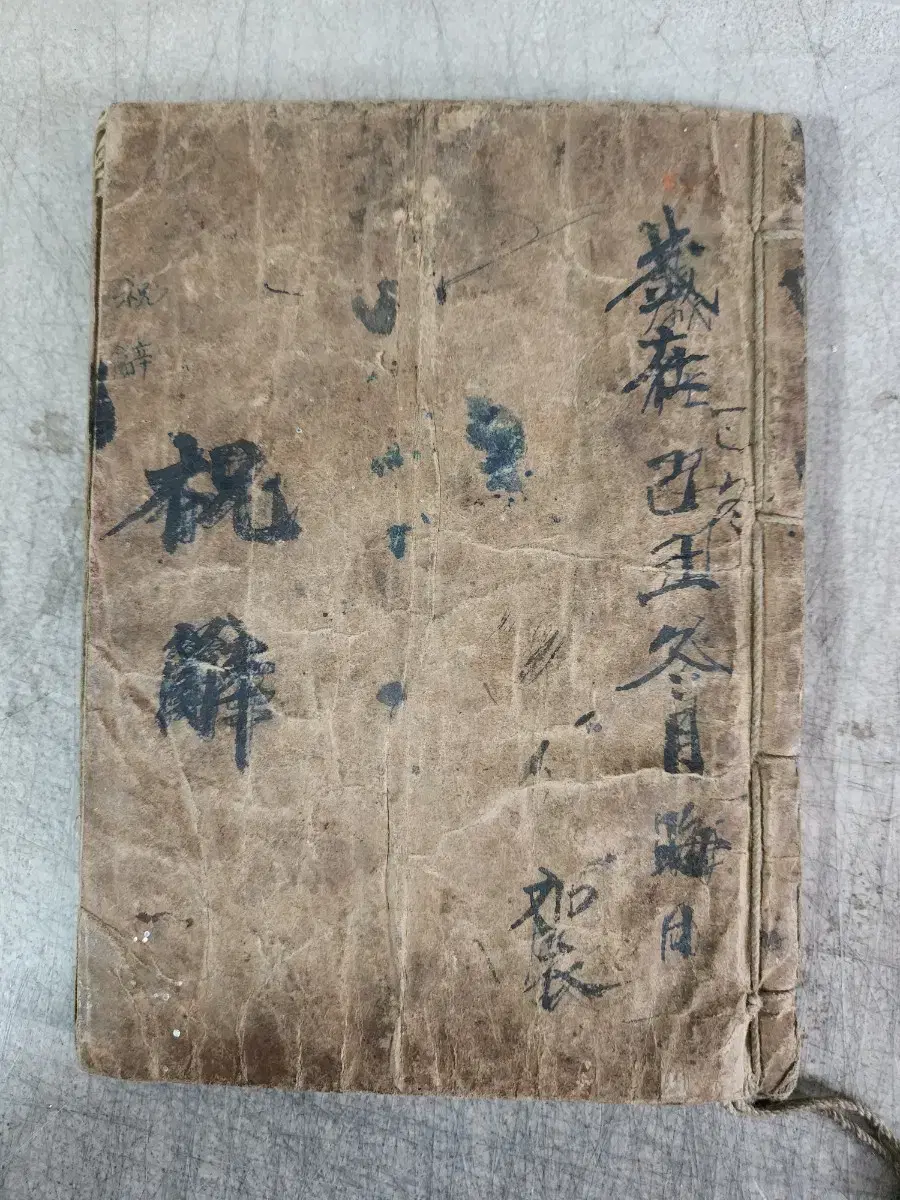 歲在己丑冬月晦日
祝辭
祝辭